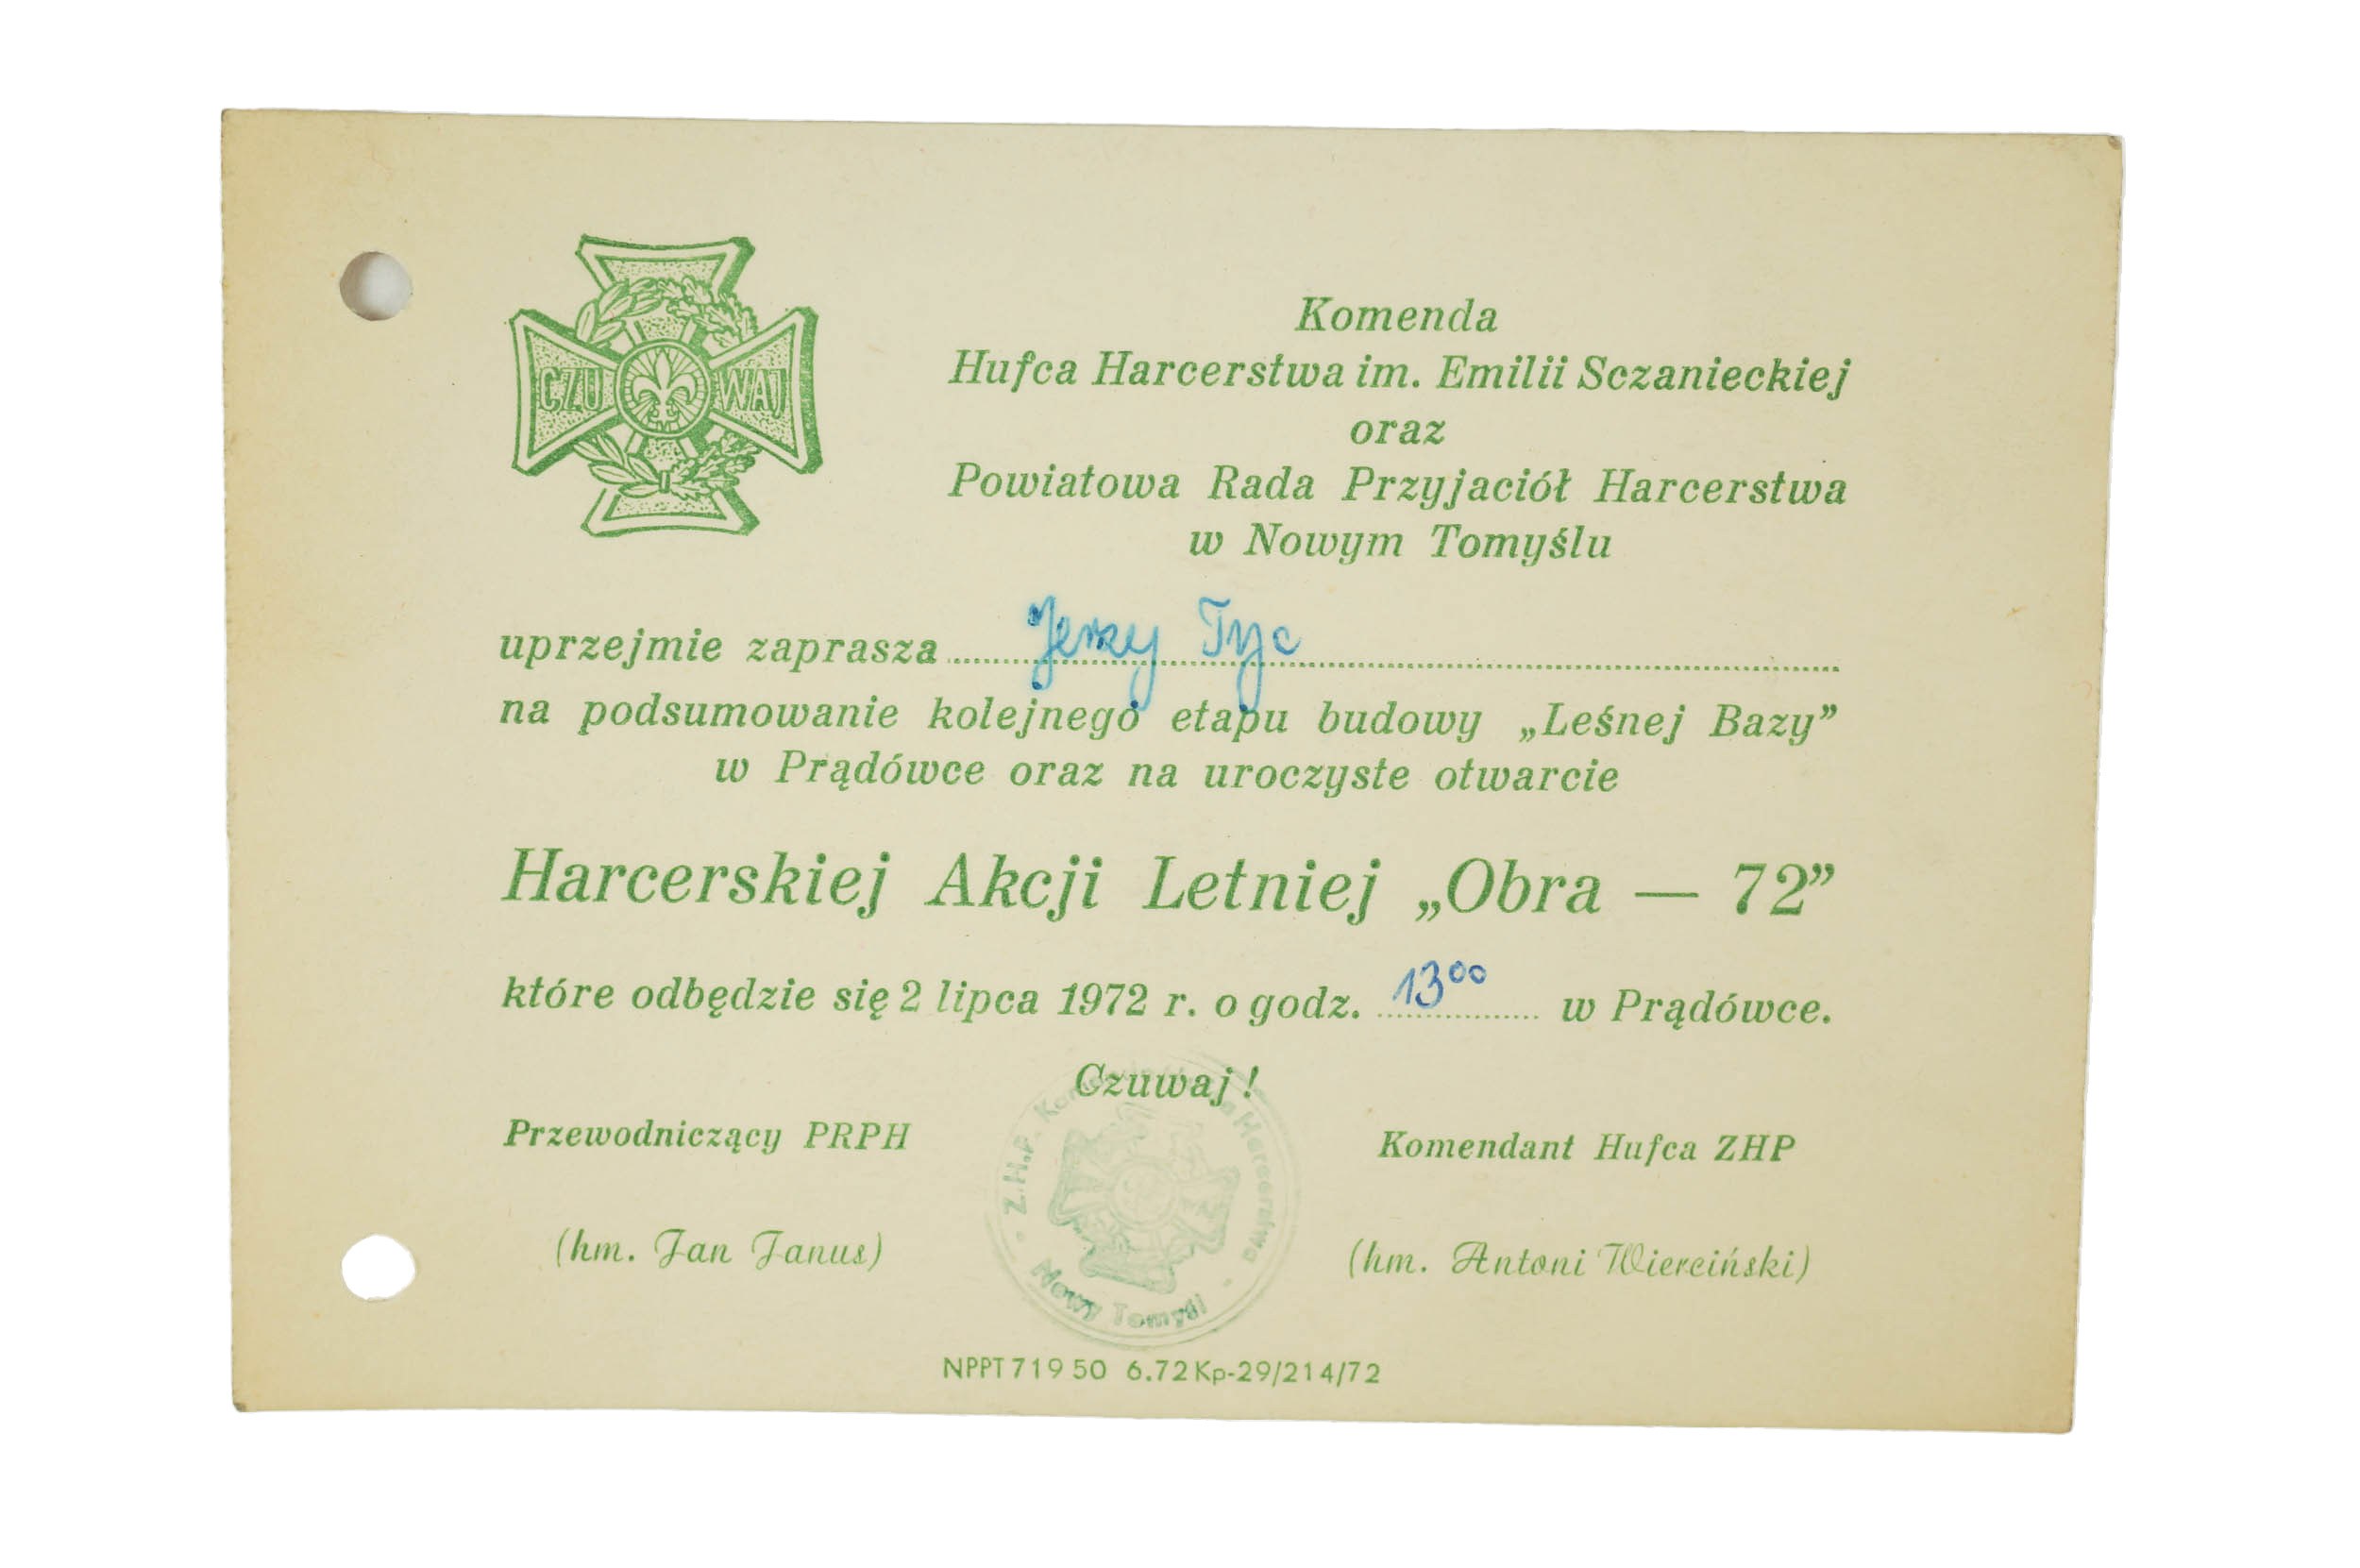 CZUWAJ
Komenda
Hufca Harcerstwa im. Emilii Sczanieckiej
oraz
Powiatowa Rada Przyjaciół Harcerstwa
w Nowym Tomyślu
uprzejmie zaprasza Jerzy Tyc
na podsumowanie kolejnego etapu budowy „Leśnej Bazy”
w Prądówce oraz na uroczyste otwarcie
Harcerskiej Akcji Letniej „Obra — 72”
które odbędzie się 2 lipca 1972 r. o godz. 13⁰⁰ w Prądówce.
Czuwaj!
Przewodniczący PRPH
Komendant Hufca ZHP
(hm. Jan Janus)
(hm. Antoni Wierciński)
Z.H.P. Harcerstwa
Nowy Tomyśl
NPPT 719 50 6.72 Kp-29/214/72